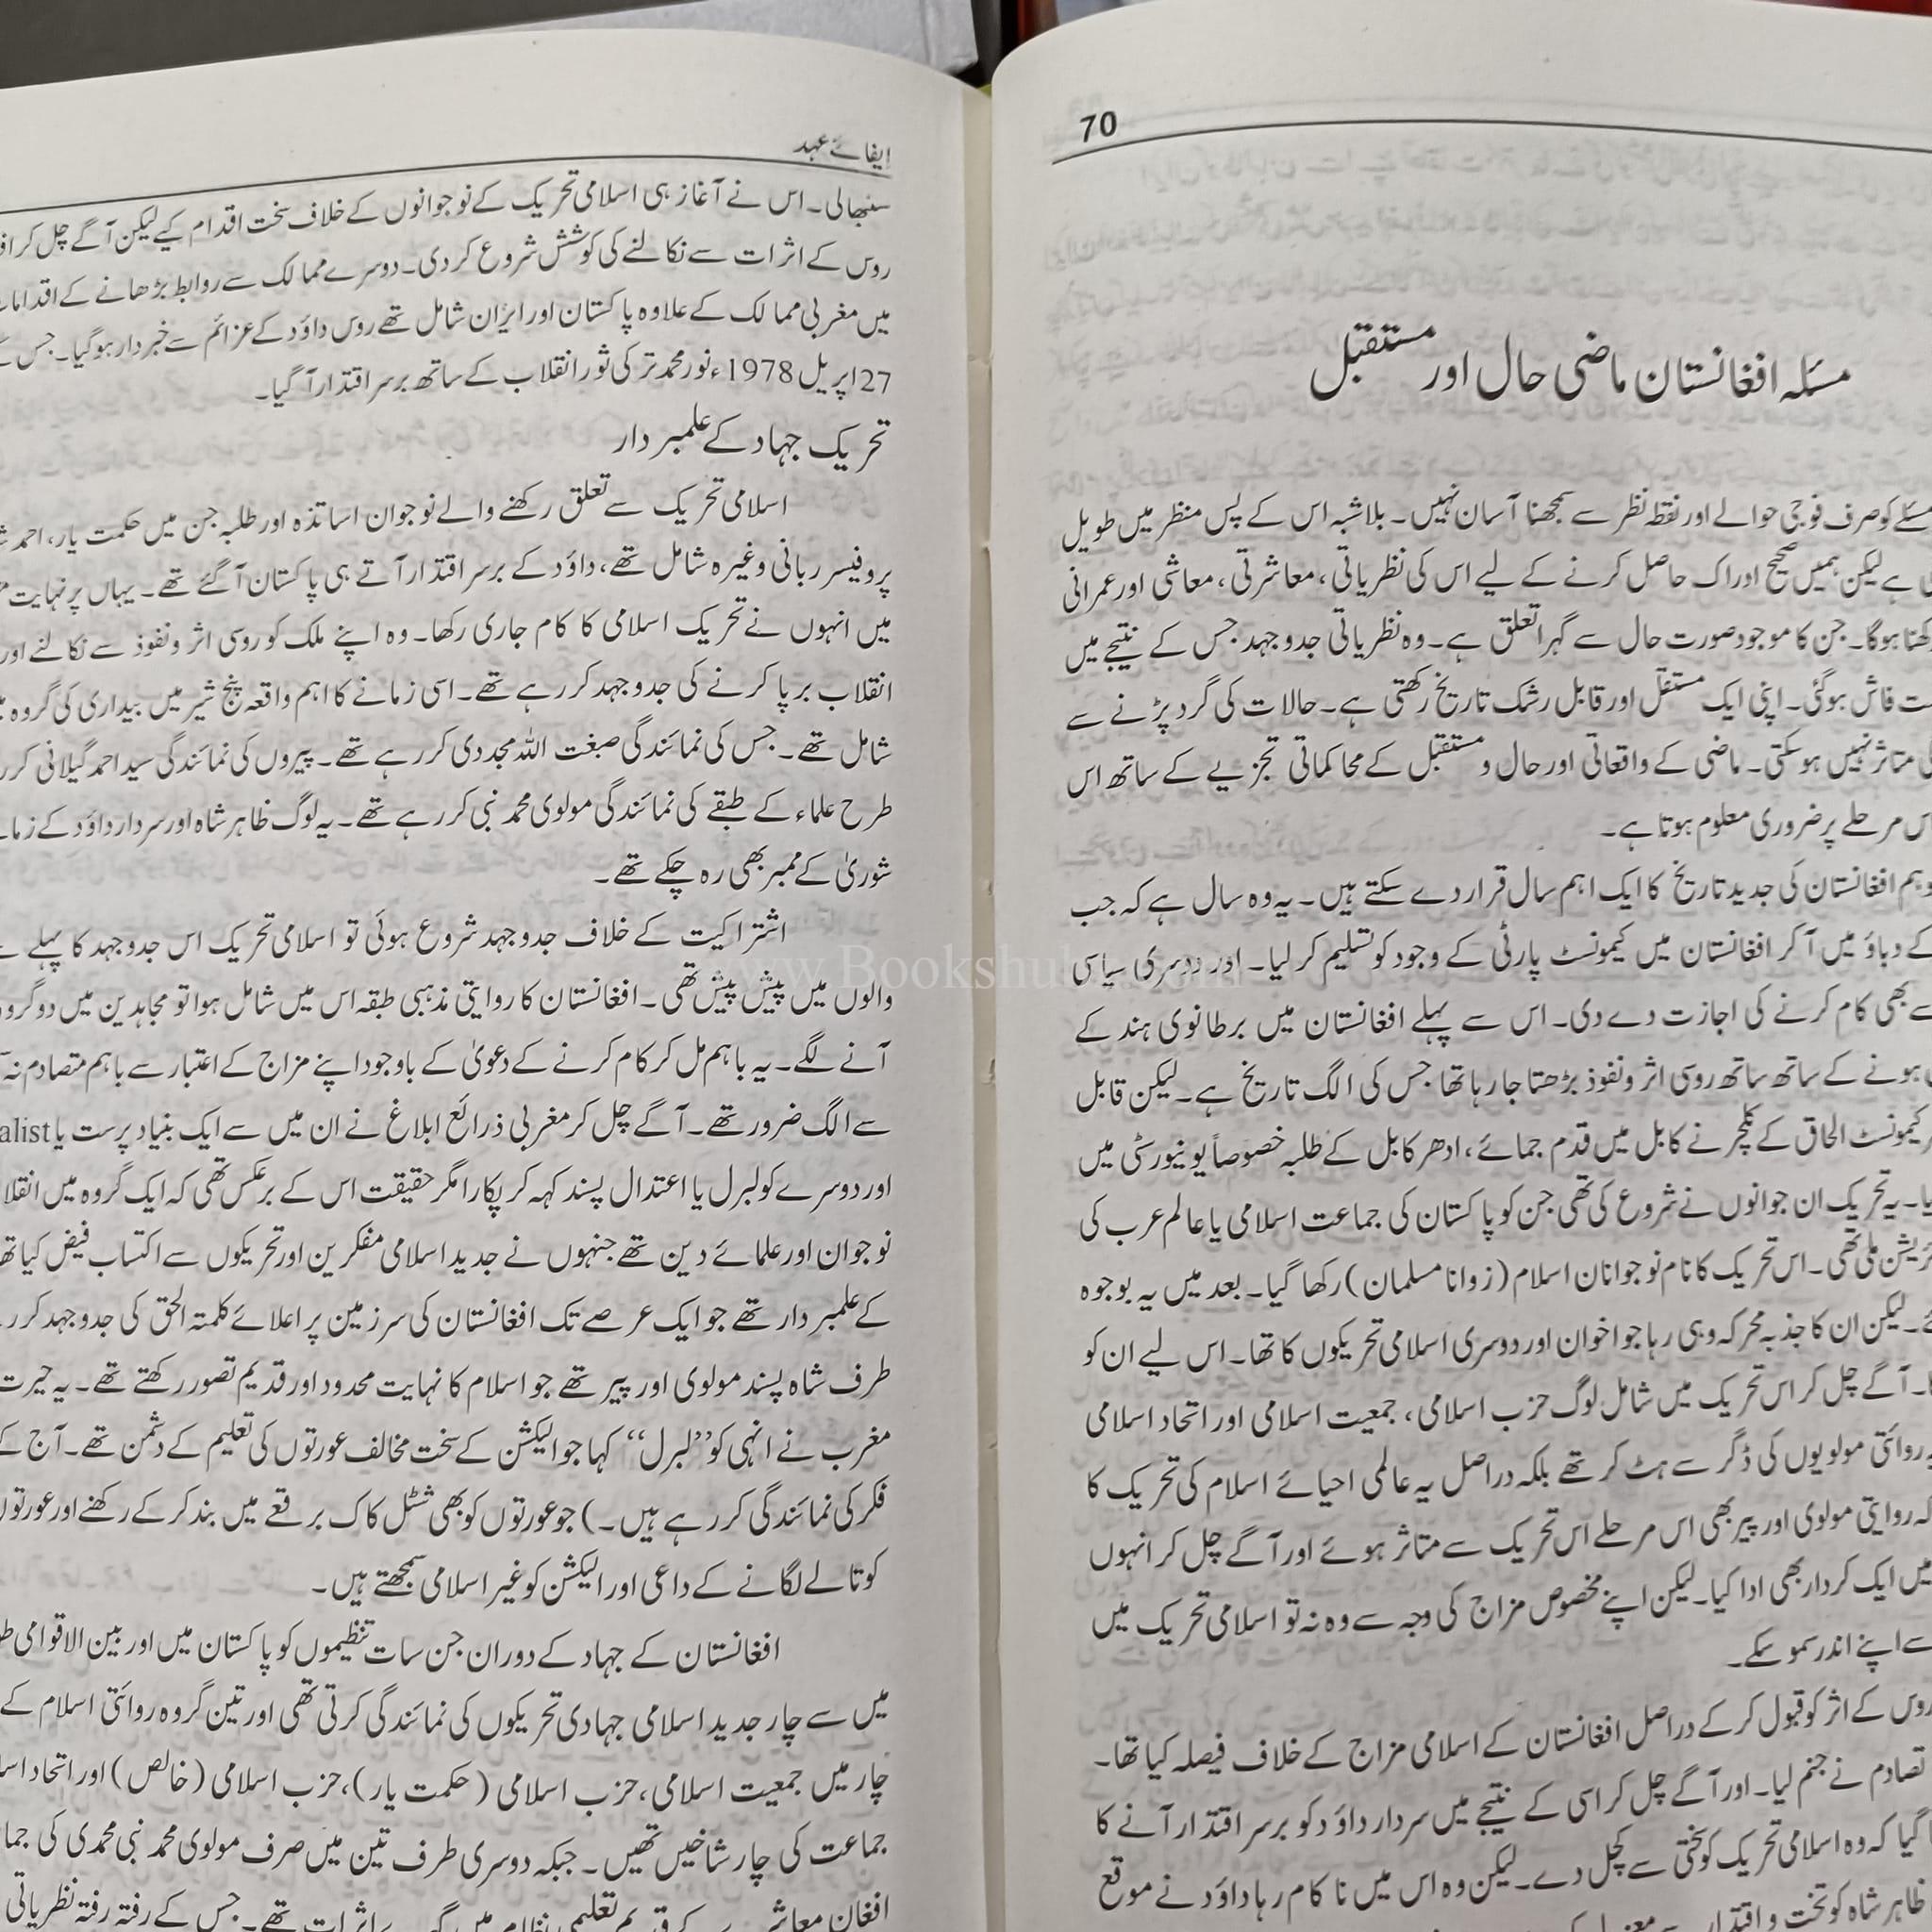 70
مسئلہ افغانستان ماضی حال اور مستقبل
مسئلے کو صرف فوجی حوالے اور نقطہ نظر سے سمجھنا آسان نہیں۔ بلاشبہ اس کے پس منظر میں طویل
ہے لیکن ہمیں صحیح ادراک حاصل کرنے کے لیے اس کی نظریاتی، معاشرتی، معاشی اور عمرانی
ہوگا۔ جن کا موجود صورت حال سے گہرا تعلق ہے۔ وہ نظریاتی جدوجہد جس کے نتیجے میں
فاش ہوگئی۔ اپنی ایک مستقل اور قابل رشک تاریخ رکھتی ہے۔ حالات کی گرد پڑنے سے
متاثر نہیں ہوسکتی۔ ماضی کے واقعاتی اور حال و مستقبل کے محاکماتی تجزیے کے ساتھ اس
مرحلے پر ضروری معلوم ہوتا ہے۔
ہم افغانستان کی جدید تاریخ کا ایک اہم سال قرار دے سکتے ہیں۔ یہ وہ سال ہے کہ جب
کے دباؤ میں آکر افغانستان میں کیمونسٹ پارٹی کے وجود کو تسلیم کر لیا۔ اور دوسری سیاسی
بھی کام کرنے کی اجازت دے دی۔ اس سے پہلے افغانستان میں برطانوی ہند کے
ہونے کے ساتھ ساتھ روسی اثر و نفوذ بڑھتا جا رہا تھا جس کی الگ تاریخ ہے۔ لیکن قابل
کیمونسٹ الحاق کے کلچر نے کابل میں قدم جمائے، ادھر کابل کے طلبہ خصوصاً یونیورسٹی میں
یہ تحریک ان جوانوں نے شروع کی تھی جن کو پاکستان کی جماعت اسلامی یا عالم عرب کی
ملی تھی۔ اس تحریک کا نام نوجوانان اسلام (زوانا مسلمان) رکھا گیا۔ بعد میں یہ بوجوہ
لیکن ان کا جذبہ محرکہ وہی رہا جو اخوان اور دوسری اسلامی تحریکوں کا تھا۔ اس لیے ان کو
آگے چل کر اس تحریک میں شامل لوگ حزب اسلامی، جمعیت اسلامی اور اتحاد اسلامی
روائتی مولویوں کی ڈگر سے ہٹ کر تھے بلکہ دراصل یہ عالمی احیائے اسلام کی تحریک کا
روایتی مولوی اور پیر بھی اس مرحلے اس تحریک سے متاثر ہوئے اور آگے چل کر انہوں
میں ایک کردار بھی ادا کیا۔ لیکن اپنے مخصوص مزاج کی وجہ سے وہ نہ تو اسلامی تحریک میں
سے اپنے اندر سمو سکے۔
روس کے اثر کو قبول کرکے دراصل افغانستان کے اسلامی مزاج کے خلاف فیصلہ کیا تھا۔
تصادم نے جنم لیا۔ اور آگے چل کر اسی کے نتیجے میں سردار داؤد کو برسر اقتدار آنے کا
گیا کہ وہ اسلامی تحریک کو سختی سے کچل دے۔ لیکن وہ اس میں ناکام رہا داؤد نے موقع
ظاہر شاہ کو تخت و اقتدار سے
ایفائے عہد
سنبھالی۔ اس نے آغاز ہی اسلامی تحریک کے نوجوانوں کے خلاف سخت اقدام کیے لیکن آگے چل کر
روس کے اثرات سے نکالنے کی کوشش شروع کر دی۔ دوسرے ممالک سے روابط بڑھانے کے
میں مغربی ممالک کے علاوہ پاکستان اور ایران شامل تھے روس داؤد کے عزائم سے خبردار ہوگیا۔ جس
27 اپریل 1978ء نور محمد ترکی ثور انقلاب کے ساتھ برسر اقتدار آگیا۔
تحریک جہاد کے علمبردار
اسلامی تحریک سے تعلق رکھنے والے نوجوان اساتذہ اور طلبہ جن میں حکمت یار، احمد
پروفیسر ربانی وغیرہ شامل تھے، داؤد کے برسر اقتدار آتے ہی پاکستان آگئے تھے۔ یہاں پر نہایت
میں انہوں نے تحریک اسلامی کا کام جاری رکھا۔ وہ اپنے ملک کو روسی اثر و نفوذ سے نکالنے اور
انقلاب برپا کرنے کی جدوجہد کر رہے تھے۔ اسی زمانے کا اہم واقعہ پنج شیر میں بیداری کی گروہ
شامل تھے۔ جس کی نمائندگی صبغت اللہ مجددی کر رہے تھے۔ پیروں کی نمائندگی سید احمد گیلانی
طرح علماء کے طبقے کی نمائندگی مولوی محمد نبی کر رہے تھے۔ یہ لوگ ظاہر شاہ اور سردار داؤد کے
شوریٰ کے ممبر بھی رہ چکے تھے۔
اشتراکیت کے خلاف جدوجہد شروع ہوئی تو اسلامی تحریک اس جدوجہد کا پہلے
والوں میں پیش پیش تھی۔ افغانستان کا روایتی مذہبی طبقہ اس میں شامل ہوا تو مجاہدین میں دو
آنے لگے۔ یہ باہم مل کر کام کرنے کے دعویٰ کے باوجود اپنے مزاج کے اعتبار سے باہم متصادم نہ
سے الگ ضرور تھے۔ آگے چل کر مغربی ذرائع ابلاغ نے ان میں سے ایک بنیاد پرست یا
اور دوسرے کو لبرل یا اعتدال پسند کہہ کر پکارا مگر حقیقت اس کے برعکس تھی کہ ایک گروہ میں
نوجوان اور علمائے دین تھے جنہوں نے جدید اسلامی مفکرین اور تحریکوں سے اکتساب فیض کیا
کے علمبردار تھے جو ایک عرصے تک افغانستان کی سرزمین پر اعلائے کلمتہ الحق کی جدوجہد
طرف شاہ پسند مولوی اور پیر تھے جو اسلام کا نہایت محدود اور قدیم تصور رکھتے تھے۔ یہ حیرت
مغرب نے انہی کو ’’لبرل‘‘ کہا جو الیکشن کے سخت مخالف عورتوں کی تعلیم کے دشمن تھے۔ آج
فکر کی نمائندگی کر رہے ہیں۔) جو عورتوں کو بھی شٹل کاک برقعے میں بند کر کے رکھنے اور
کو تالے لگانے کے داعی اور الیکشن کو غیر اسلامی سمجھتے ہیں۔
افغانستان کے جہاد کے دوران جن سات تنظیموں کو پاکستان میں اور بین الاقوامی
میں سے چار جدید اسلامی جہادی تحریکوں کی نمائندگی کرتی تھی اور تین گروہ روائتی اسلام کے
چار میں جمعیت اسلامی، حزب اسلامی (حکمت یار)، حزب اسلامی (خالص) اور اتحاد
جماعت کی چار شاخیں تھیں۔ جبکہ دوسری طرف تین میں صرف مولوی محمد نبی محمدی کی
افغان تعلیمی نظام میں اثرات تھے۔ جس کے رفتہ رفتہ نظریاتی